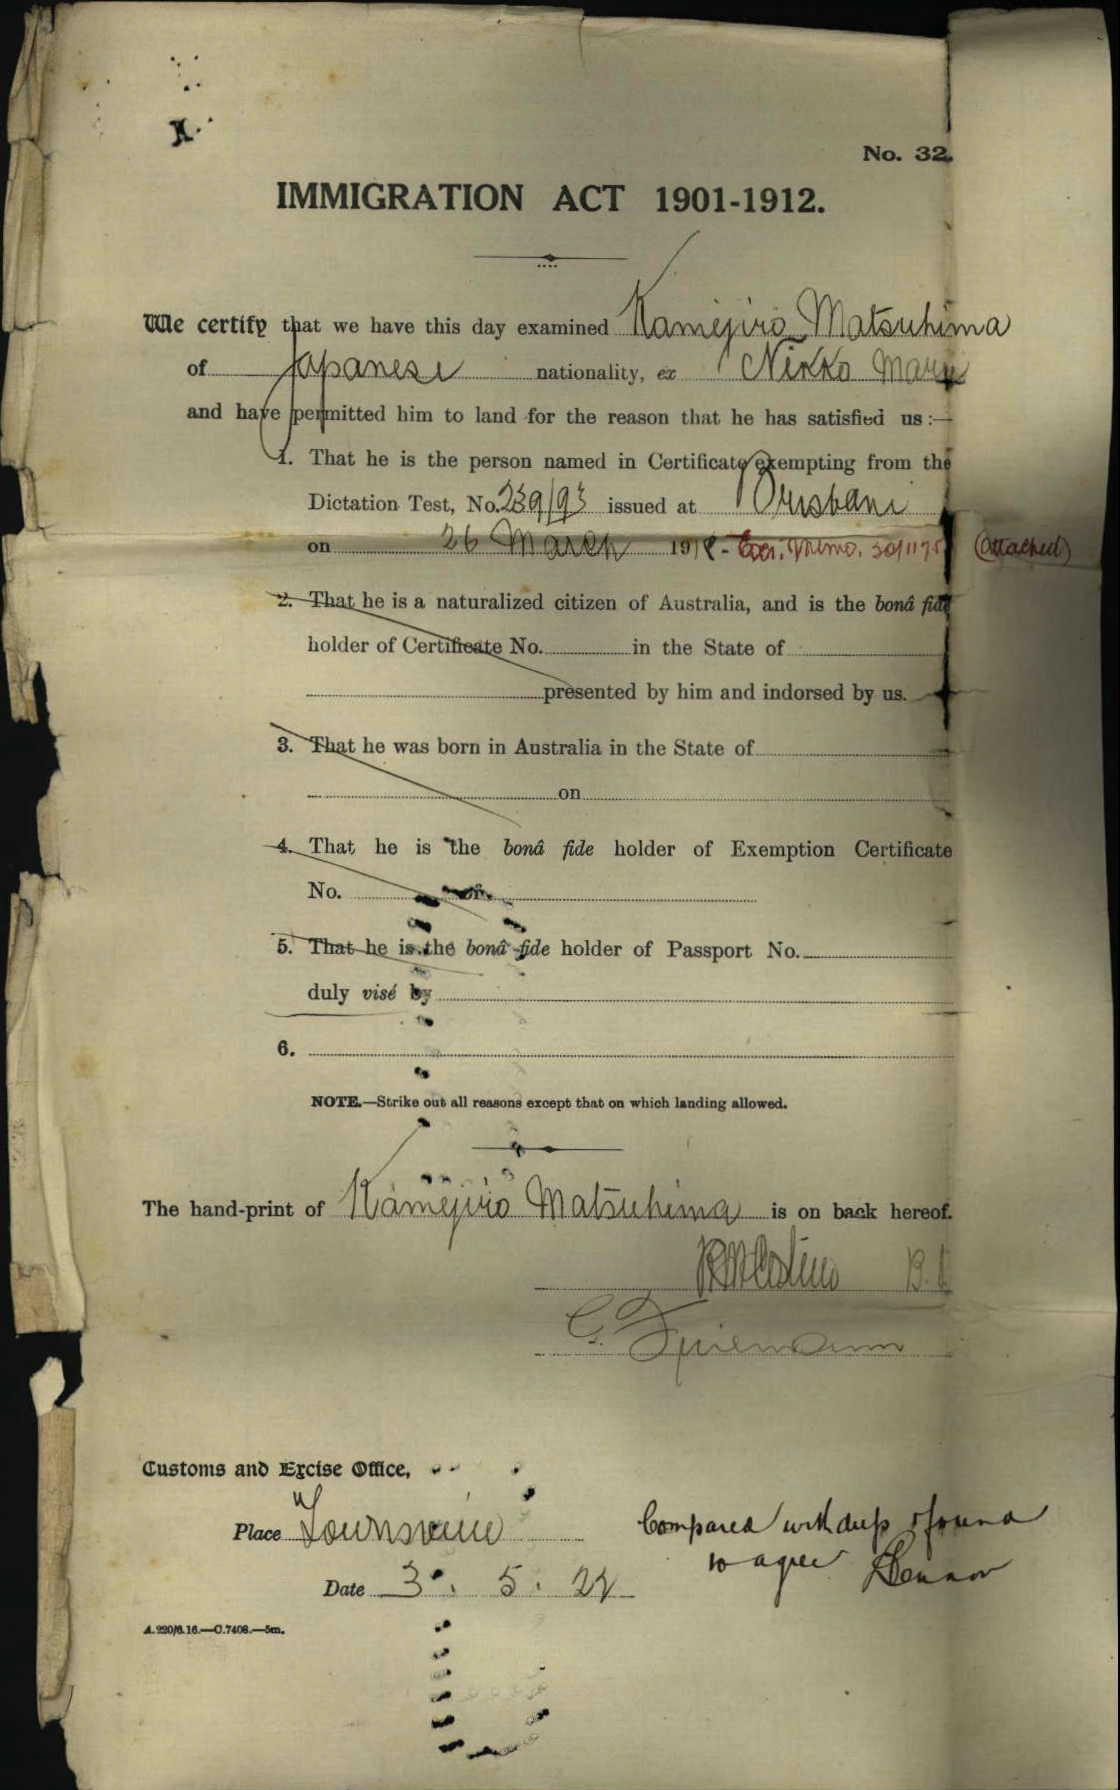 No. 32.
IMMIGRATION ACT 1901-1912.
We certify that we have this day examined Kamejiro Matsuhima
of Japanese nationality, ex Nikko Maru
and have permitted him to land for the reason that he has satisfied us :—
1. That he is the person named in Certificate exempting from the
Dictation Test, No. 239/93 issued at Brisbane
on 26 March 191 Memo. (attached)
2. That he is a naturalized citizen of Australia, and is the bonâ fide
holder of Certificate No. in the State of
presented by him and indorsed by us.
3. That he was born in Australia in the State of
on
4. That he is the bonâ fide holder of Exemption Certificate
No. or
5. That he is the bonâ fide holder of Passport No.
duly visé by
6.
NOTE.—Strike out all reasons except that on which landing allowed.
The hand-print of Kamejiro Matsuhima is on back hereof.
C.
Customs and Excise Office,
Place Townsville
Date 3. 5. 22
Compared with dup & found
to agree
A.220/6.16.—C.7408.—5m.